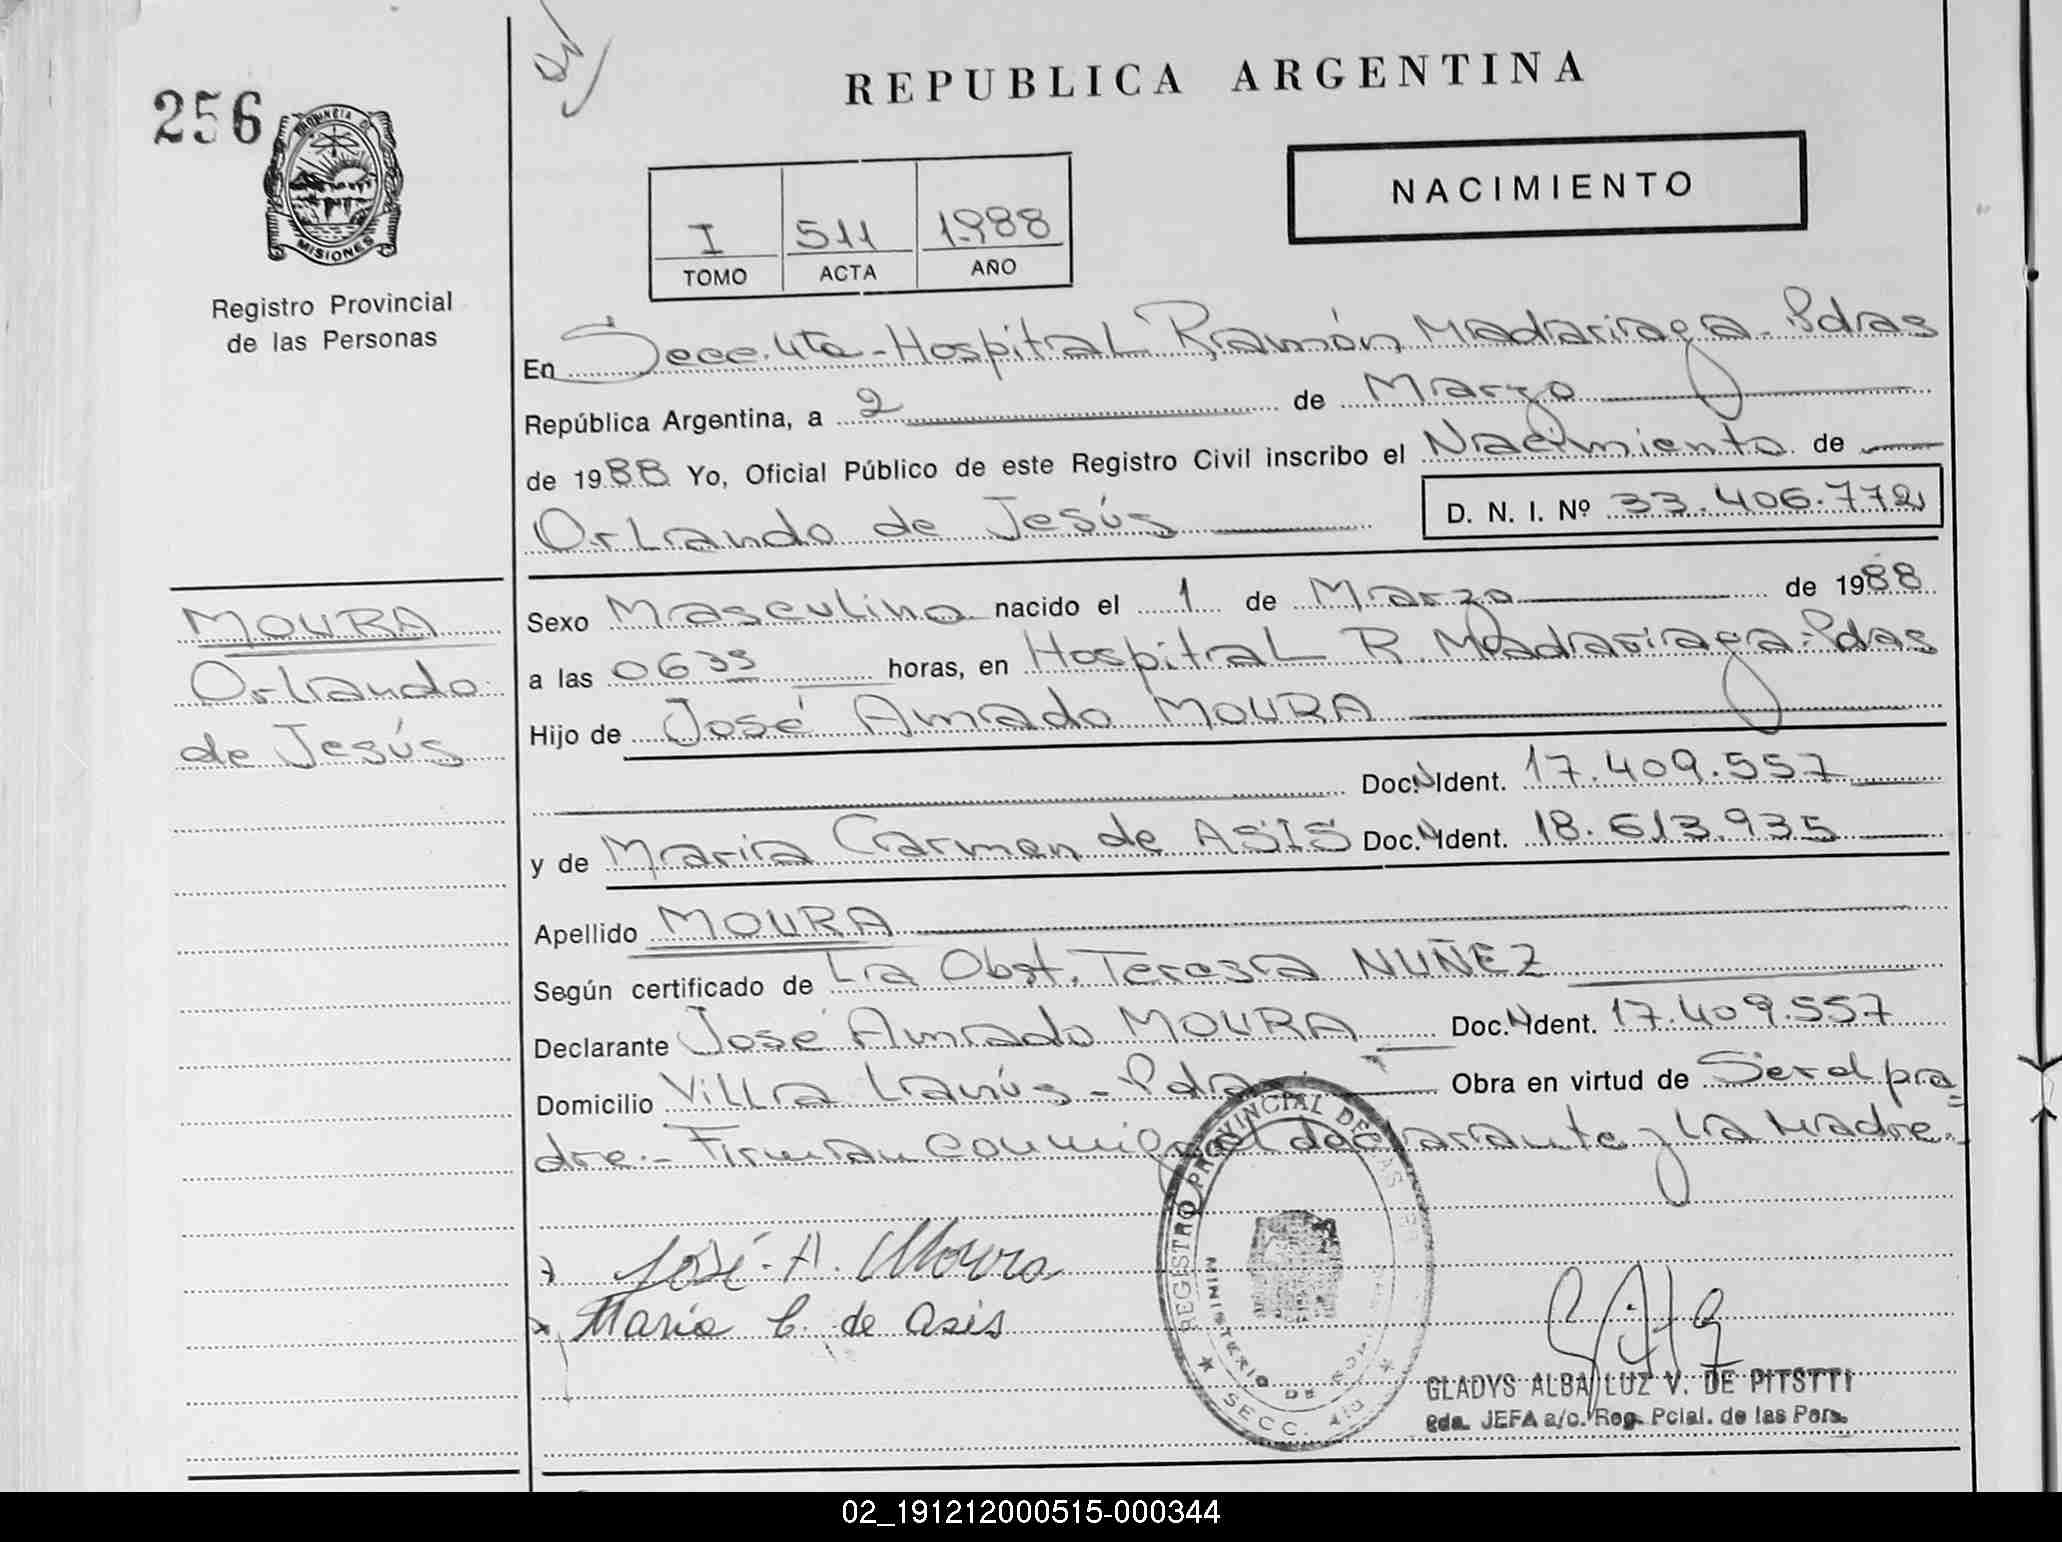 256
PROVINCIA DE
MISIONES
Registro Provincial
de las Personas
REPUBLICA ARGENTINA
NACIMIENTO
I 511 1988
TOMO ACTA AÑO
En Secc. 4ta - Hospital Ramón Madariaga - Pdas
República Argentina, a 2 de Marzo
de 1988 Yo, Oficial Público de este Registro Civil inscribo el Nacimiento de
Orlando de Jesús D. N. I. Nº 33.406.772
MOURA
Orlando
de Jesús
Sexo Masculino nacido el 1 de Marzo de 1988
a las 0635 horas, en Hospital R. Madariaga - Pdas
Hijo de José Amado MOURA
Doc. N. Ident. 17.409.557
y de Maria Carmen de ASIS Doc. N. Ident. 18.613.935
Apellido MOURA
Según certificado de La Obst. Teresa NUÑEZ
Declarante José Amado MOURA Doc. N. Ident. 17.409.557
Domicilio Villa Lanús - Pdas Obra en virtud de Ser el pa=
dre.- Firman conmigo el declarante y la Madre.-
José A. Moura
María C. de Asis
REGISTRO PROVINCIAL DE LAS PER
MINISTERIO DE
SECC. 4ta
GLADYS ALBA LUZ V. DE PITSTTI
2da. JEFA a/c. Reg. Pcial. de las Pers.
02_191212000515-000344